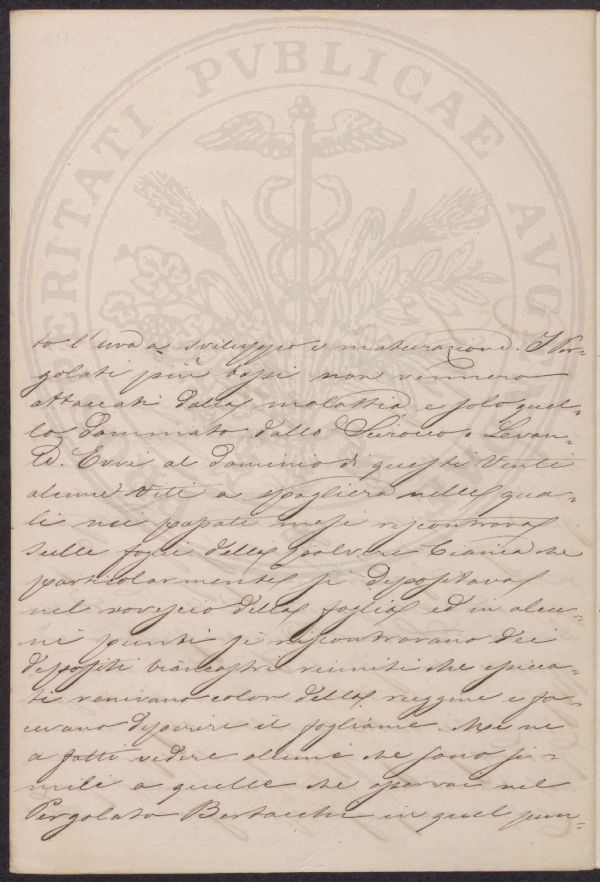 VERITATI PVBLICAE AVG
to l'uva a sviluppo e maturazione. I Per=
golati più bassi non vennero
attaccati dalla malattia e solo quel=
lo dominato dallo Scirocco o Levan=
te. Evvi al dominio di questi Venti
alcune Viti a spagliera nelle qua=
li nei passati mesi riscontravas
sulle foglie della polvere bianca che
particolarmente si depositava
nel rovescio della foglia ed in alcu=
ni punti si riscontravano dei
depositi biancastri riuniti che spicca=
ti venivano color della ruggine e fa=
cevano disperire il fogliame. Me ne
a fatti vedere alcune che sono si=
mili a quelle che osservai nel
Pergolato Bertacchi in quel pun=